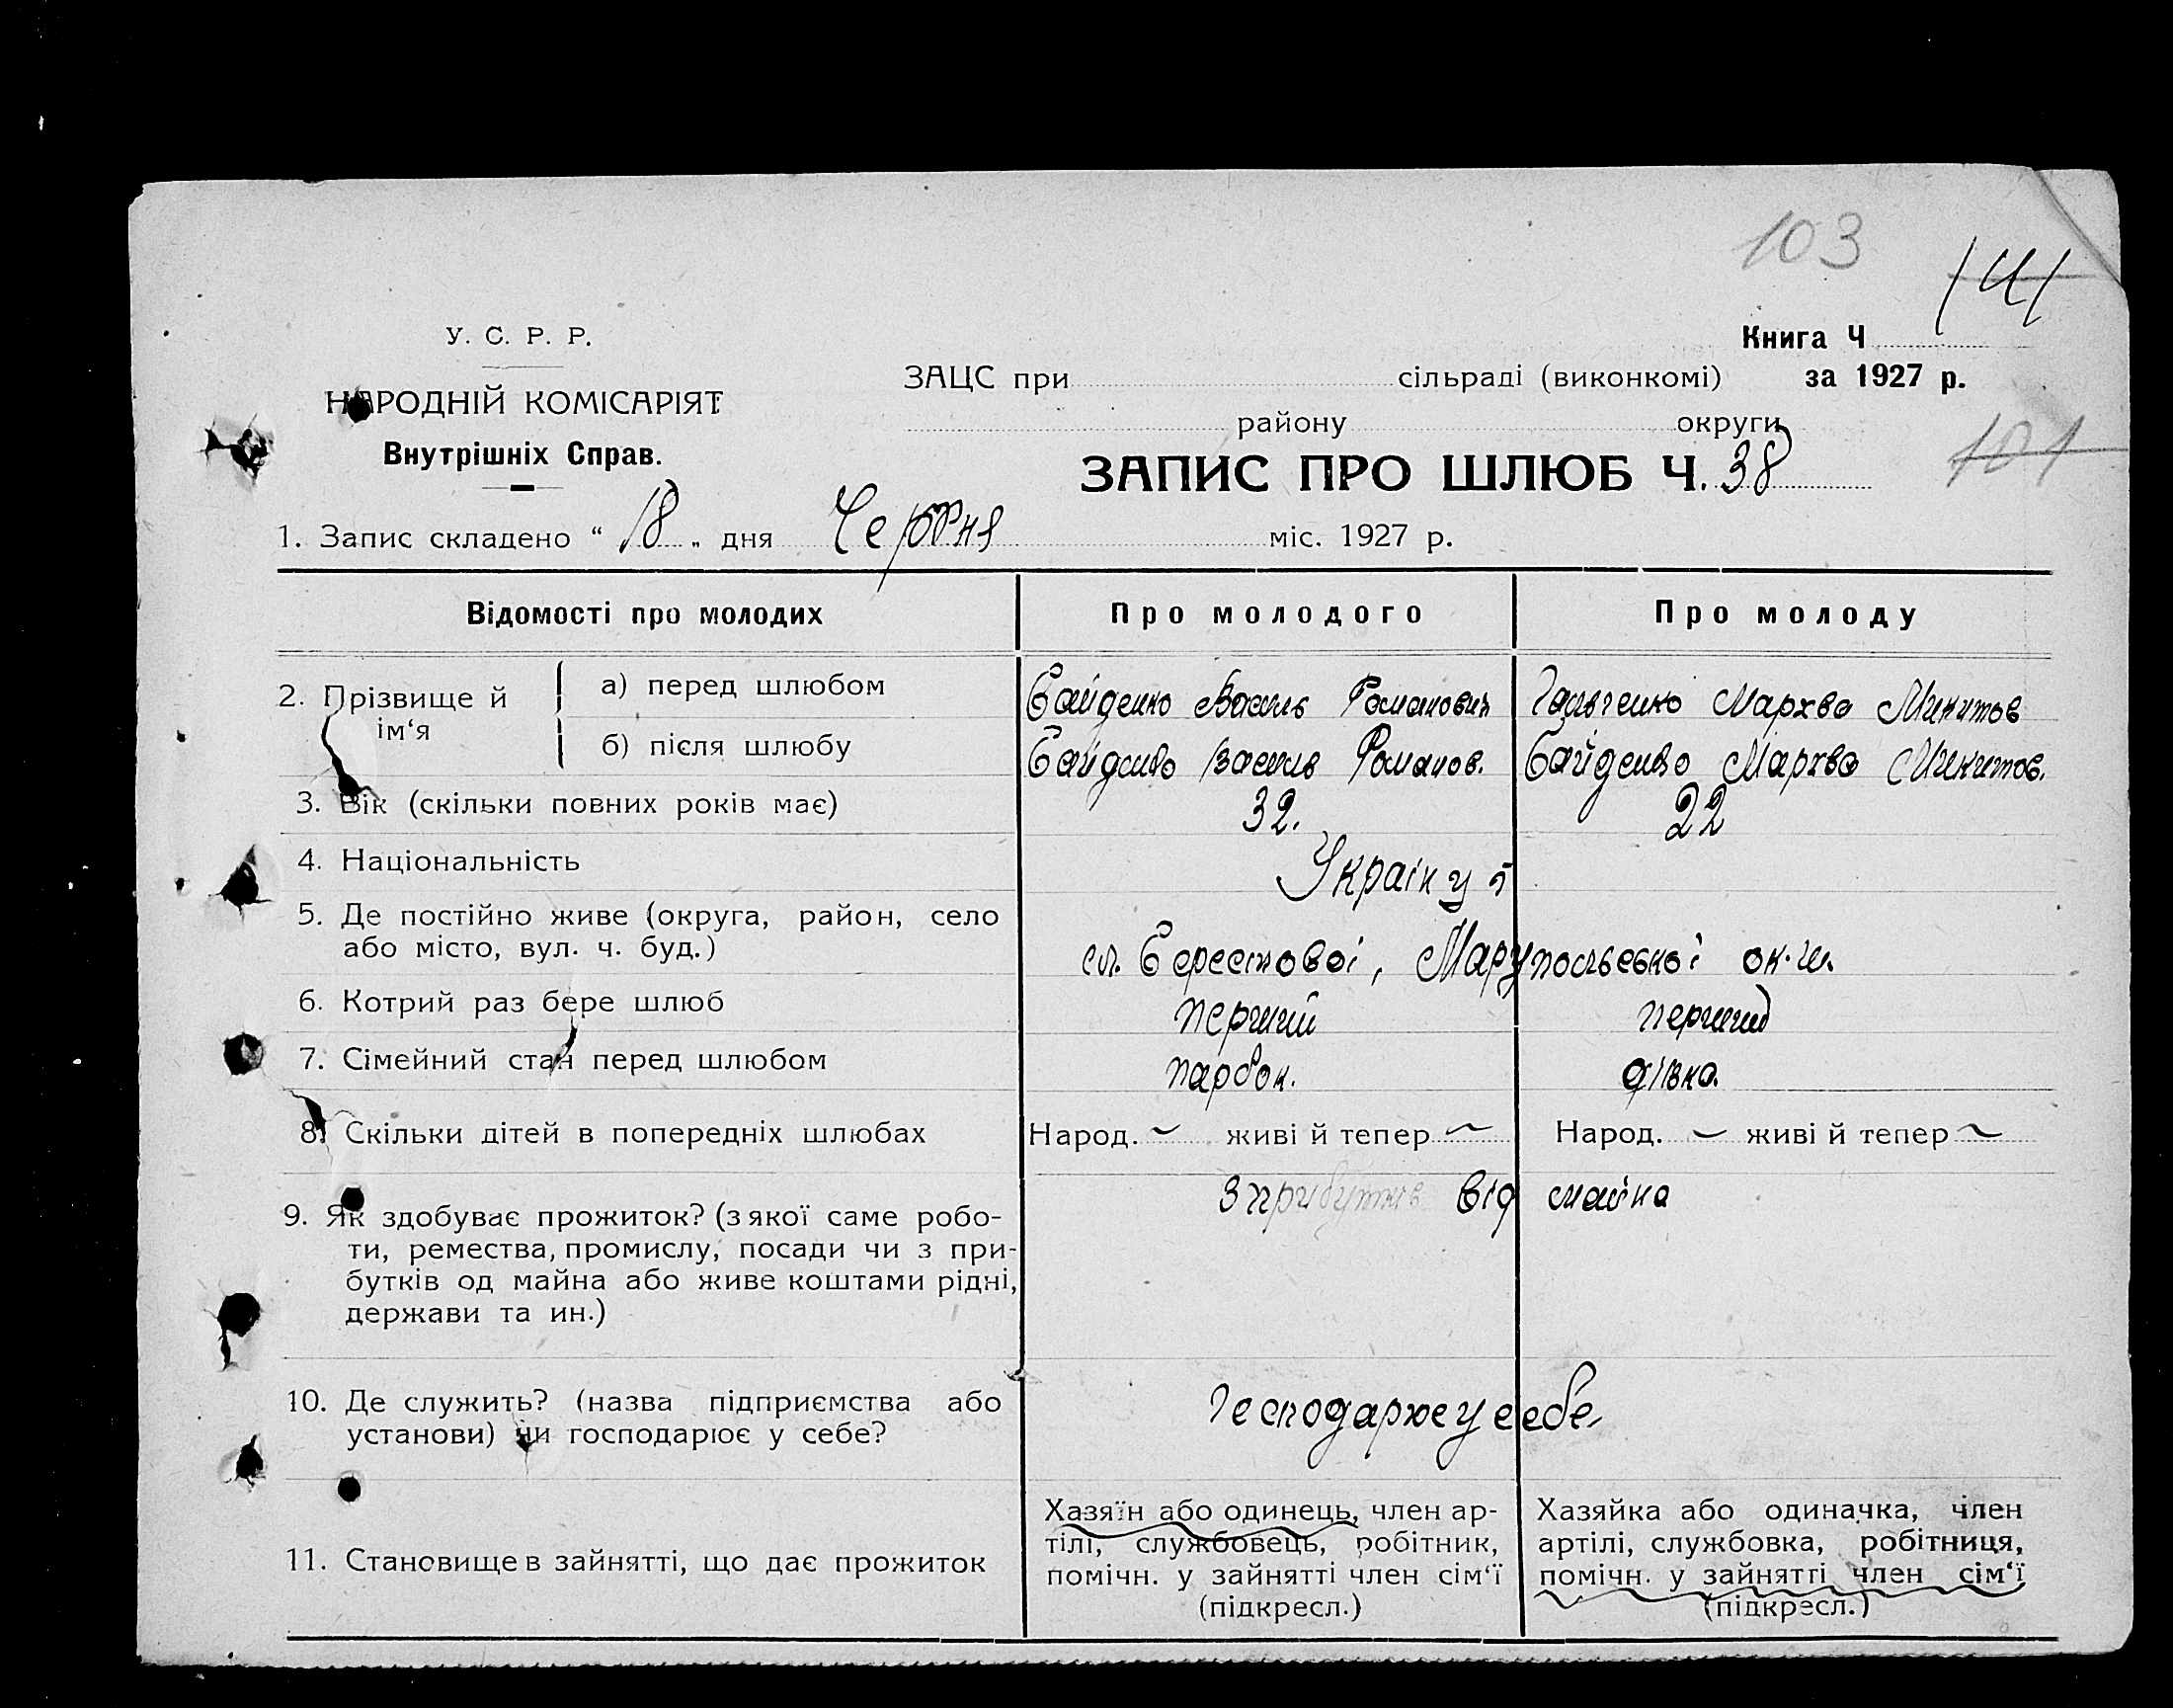 103
141
У. С. Р. Р.
Книга Ч
НАРОДНІЙ КОМІСАРІЯТ
ЗАЦС при сільраді (виконкомі) за 1927 р.
Внутрішніх Справ.
району округи
101
ЗАПИС ПРО ШЛЮБ Ч. 38
1. Запис складено “ 18 „ дня Червня міс. 1927 р.
Відомості про молодих
Про молодого
Про молоду
2. Прізвище й ім‘я
а) перед шлюбом
Байденко Василь Романович
Мархва Микитов
б) після шлюбу
Байденко Василь Романов.
Байденко Мархва Микитов.
3. Вік (скільки повних років має)
32.
22
4. Національність
5. Де постійно живе (округа, район, село
або місто, вул. ч. буд.)
с. Берестової, Марупольської ок.
6. Котрий раз бере шлюб
перший
перший
7. Сімейний стан перед шлюбом
парбок.
дівка
8. Скільки дітей в попередніх шлюбах
Народ. – живі й тепер –
Народ. – живі й тепер –
9. Як здобуває прожиток? (з якої саме робо-
ти, ремества, промислу, посади чи з при-
бутків од майна або живе коштами рідні,
держави та ин.)
з прибутків від майна
10. Де служить? (назва підприємства або
установи) чи господарює у себе?
у себе
11. Становище в зайнятті, що дає прожиток
Хазяїн або одинець, член ар-
тілі, службовець, робітник,
помічн. у зайнятті член сім‘ї
(підкресл.)
Хазяйка або одиначка, член
артілі, службовка, робітниця,
помічн. у зайнятті член сім‘ї
(підкресл.)